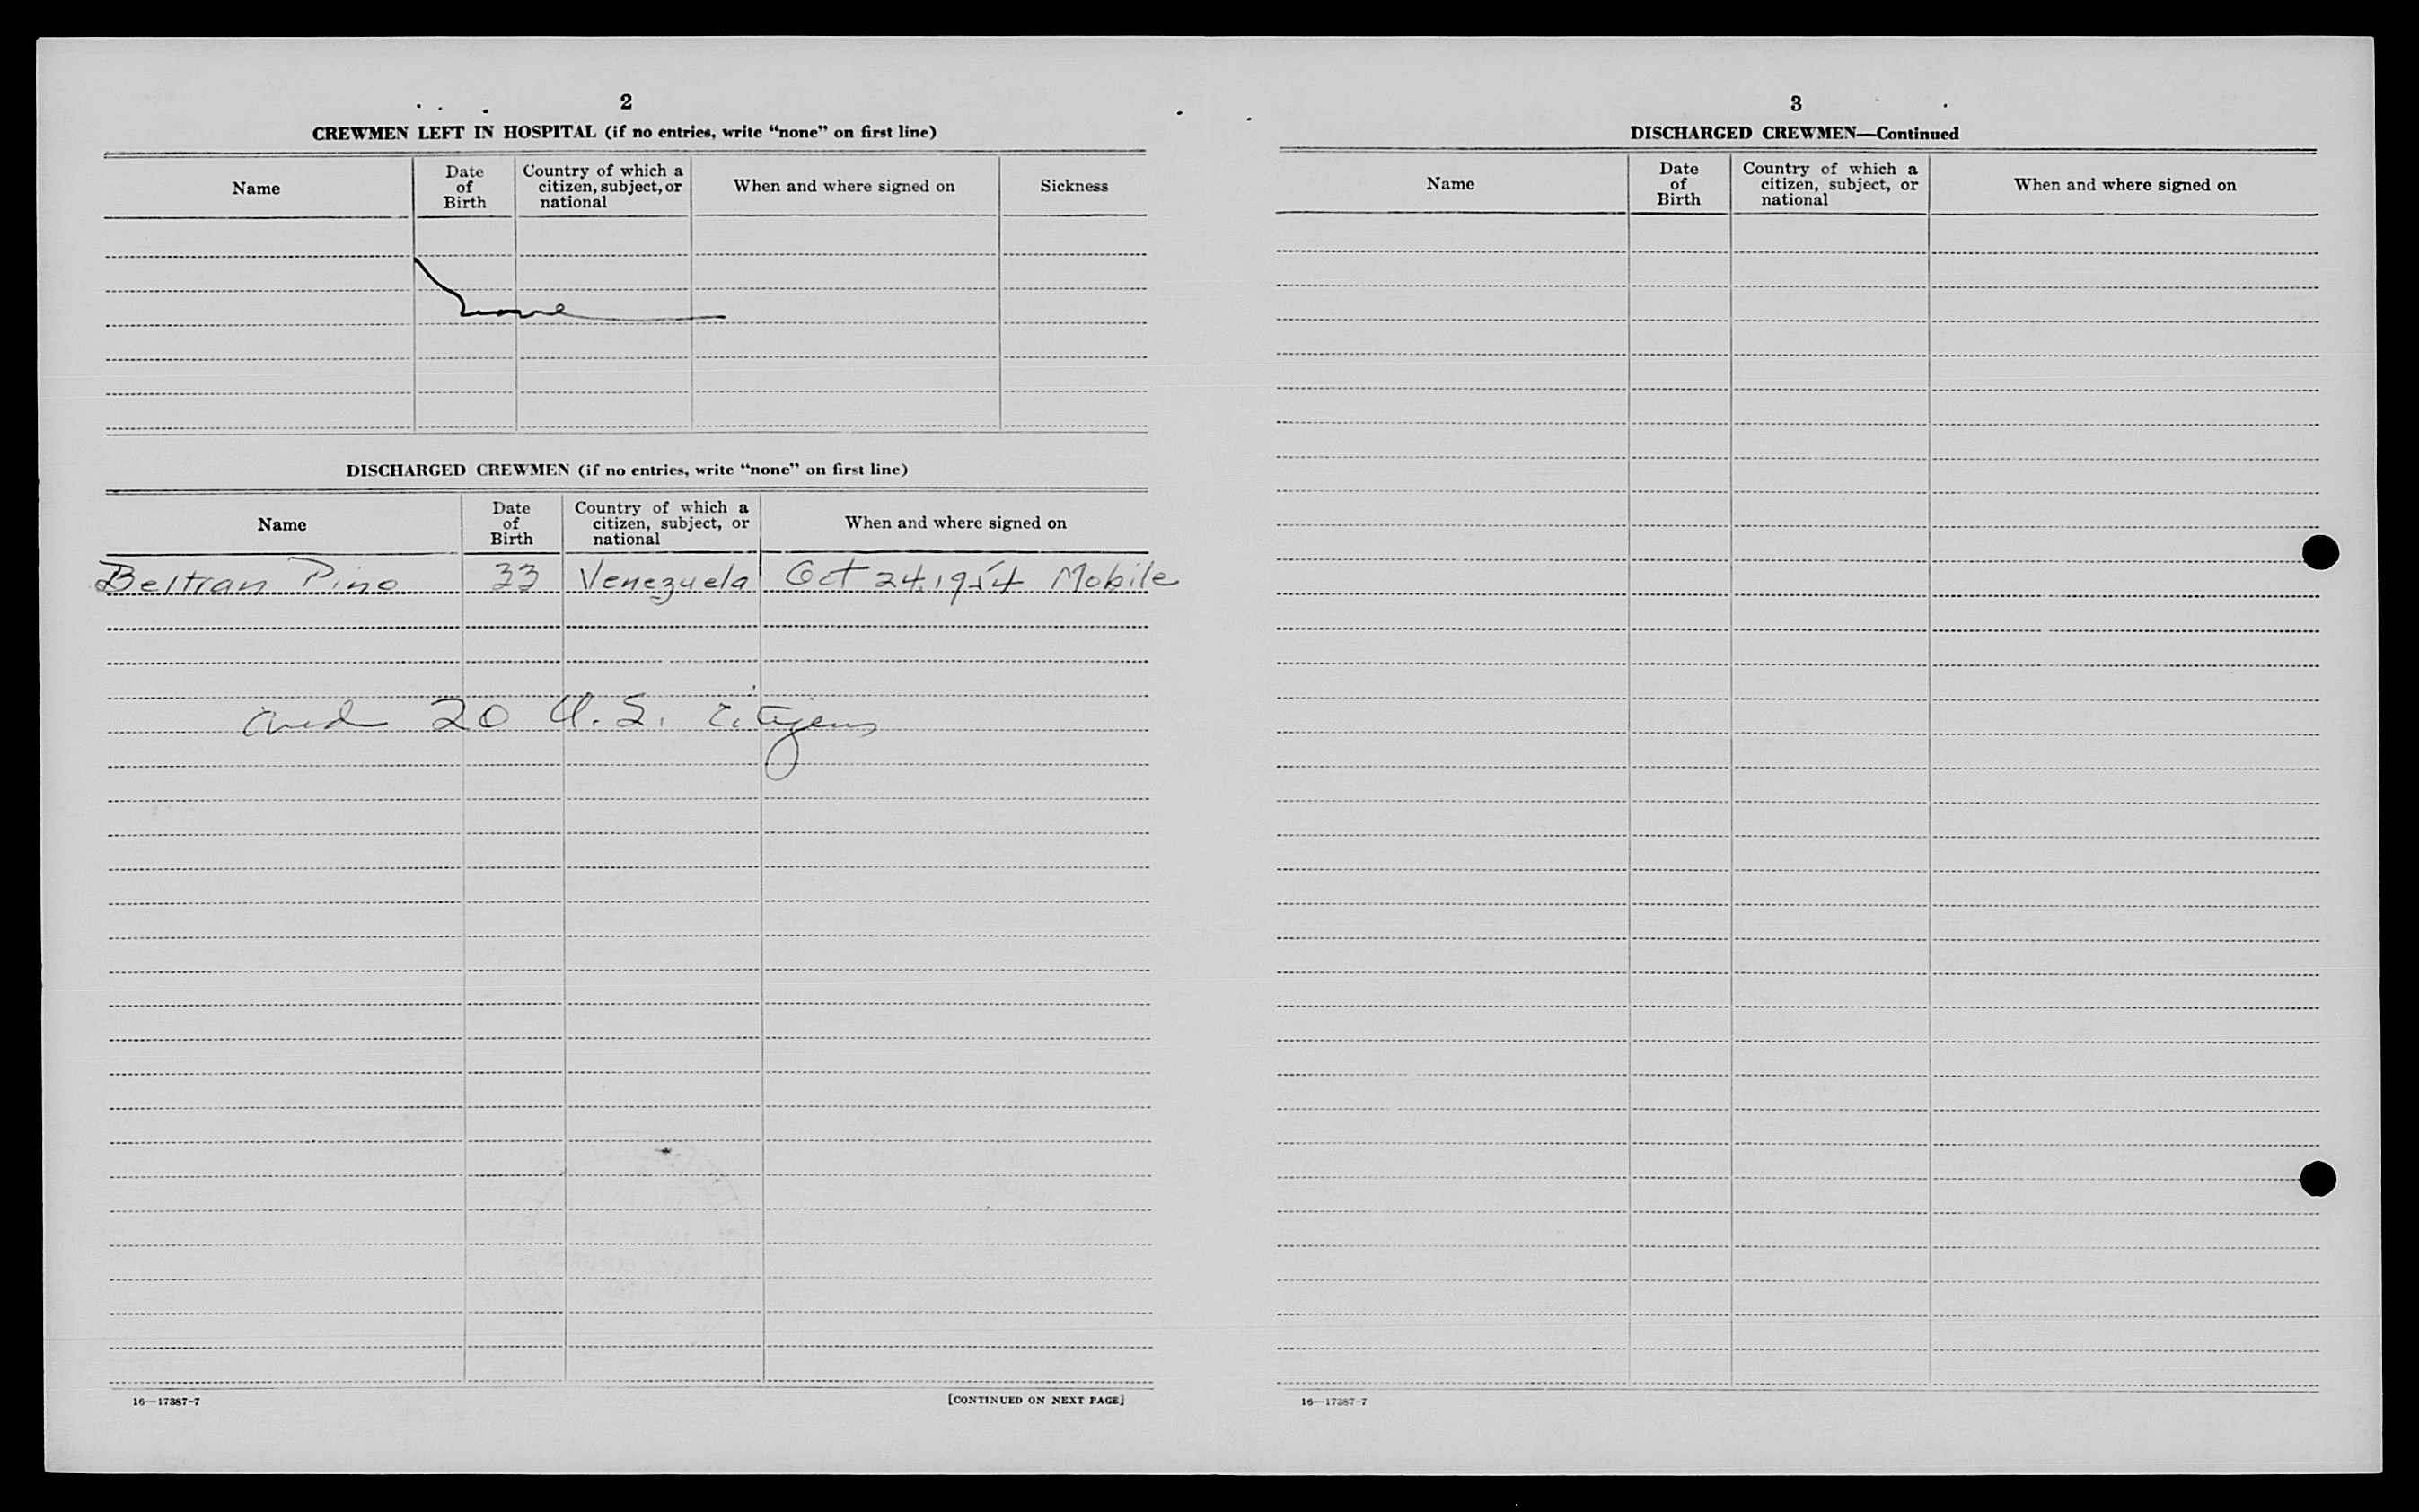 2
CREWMEN LEFT IN HOSPITAL (if no entries, write “none” on first line)
Name
Date of Birth
Country of which a citizen, subject, or national
When and where signed on
Sickness
none
DISCHARGED CREWMEN (if no entries, write “none” on first line)
Name
Date of Birth
Country of which a citizen, subject, or national
When and where signed on
Beltran Pino 33 Venezuela Oct 24, 1954 Mobile
and 20 U.S. citizens
16—17387-7
[CONTINUED ON NEXT PAGE]
3
DISCHARGED CREWMEN—Continued
Name
Date of Birth
Country of which a citizen, subject, or national
When and where signed on
16—17387-7